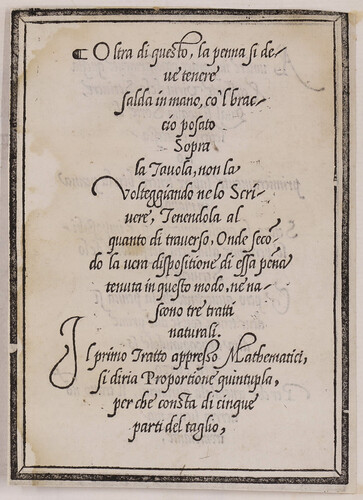 ¶ Oltra di questo, la penna si de-
ve tenere
salda in mano, co'l brac-
cio posato
Sopra
la Tavola, non la
Volteggiando ne lo Scri-
vere, Tenendola al
quanto di traverso, Onde secõ-
do la vera dispositione di essa pẽna
tenuta in questo modo, ne na-
scono tre tratti
naturali.
Il primo Tratto appresso Mathematici,
si diria Proportione quintupla,
per che consta di cinque
parti del taglio,